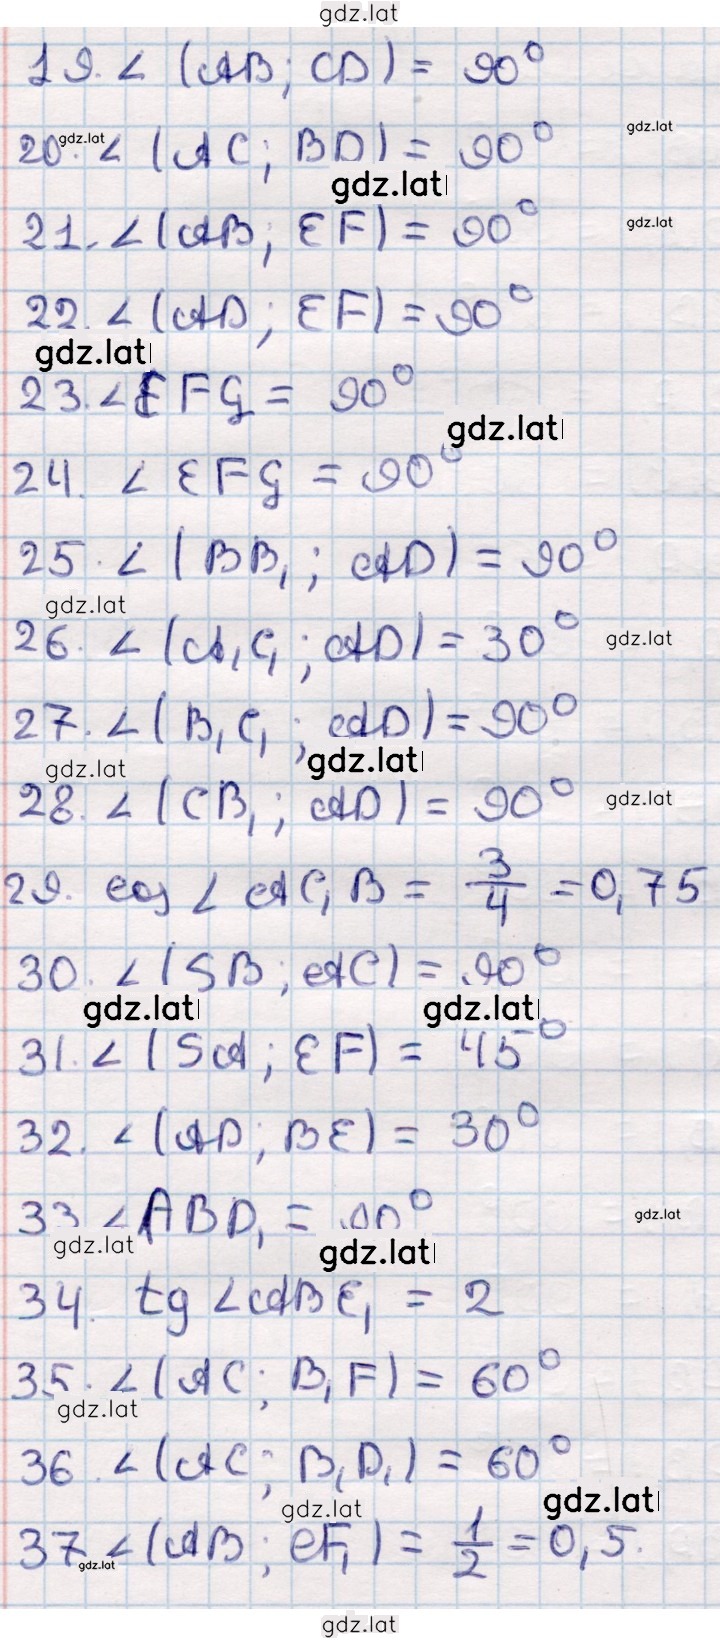 gdz.lat
19. ∠ (AB; CD) = 90°
20. ∠ (AC; BD) = 90°
gdz.lat
gdz.lat
gdz.lat
21. ∠ (AB; EF) = 90°
gdz.lat
22. ∠ (AD; EF) = 90°
gdz.lat
23. ∠EFG = 90°
gdz.lat
24. ∠ EFG = 90°
25. ∠ (BB₁; AD) = 90°
gdz.lat
26. ∠ (A₁C₁; AD) = 30°
gdz.lat
27. ∠ (B₁C₁; AD) = 90°
gdz.lat
gdz.lat
28. ∠ (CB₁; AD) = 90°
gdz.lat
29. cos ∠ AC₁B = 3/4 = 0,75
30. ∠ (SB; AC) = 90°
gdz.lat
gdz.lat
31. ∠ (SA; EF) = 45°
32. ∠ (AD; BE) = 30°
33 ∠ABD₁ = 90°
gdz.lat
gdz.lat
gdz.lat
34. tg ∠ABE₁ = 2
35. ∠ (AC; B₁F) = 60°
gdz.lat
36. ∠ (AC; B₁D₁) = 60°
gdz.lat
gdz.lat
37 ∠ (AB; CF₁) = 1/2 = 0,5.
gdz.lat
gdz.lat